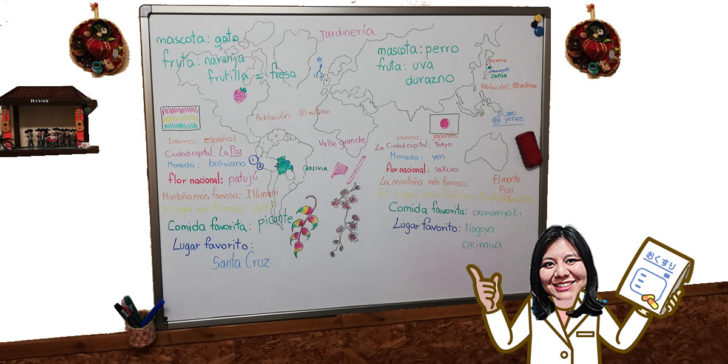 Jardinería
mascota: gato
fruta: naranja
frutilla = fresa
Población: 10
Idioma: español
Ciudad capital: La Paz
Moneda: boliviano
Flor nacional: patujú
Montaña más famosa: Illimani
El lugar más famoso: Uyuni
Comida favorita: picante
Lugar favorito:
Santa Cruz
BOLIVIA
Valle grande
mascota: perro
fruta: uva
durazno
JAPÓN
Población:
yenes
Idioma: japonés
La Ciudad capital: Tokyo
Moneda: yen
Flor nacional: sakura
La montaña más famosa:
El monte
Fuji
El lugar más famoso:
Comida favorita: okonomiyaki
Lugar favorito: Nagoya
Okinawa
おくすり